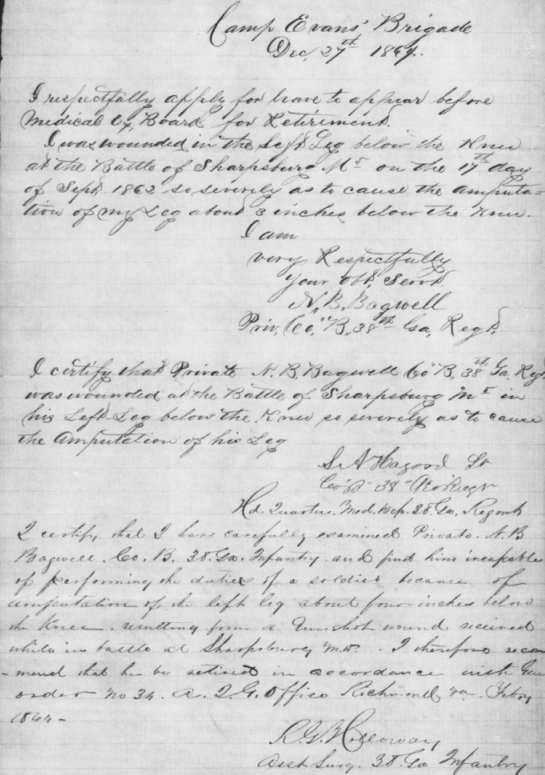 Camp Evans' Brigade
Dec, 27th 1864.
I respectfully apply for leave to appear before
Medical Ex, Board for Retirement.
I was wounded in the Left Leg below the Knee
at the Battle of Sharpsburg Md on the 17th day
of Sept 1862 so severely as to cause the amputa-
tion of my Leg about 3 inches below the Knee.
I am
very Respectfully
your obt, Servt
N, B, Bagwell
Priv, Co, "B, 38th Ga, Regt,
I certify that Private N. B, Bagwell Co "B, 38th Ga. Regt
was wounded at the Battle of Sharpsburg Md in
his Left Leg below the Knee so severely as to cause
the Amputation of his Leg
Hagood Lt
Co "B" 38th Ga Regt
Hd. Quarters, Med. Dep. 38 Ga. Regmt
I certify that I have carefully examined Private N. B
Bagwell Co. B. 38. Ga. Infantry and find him incapable
of performing the duties of a soldier because of
amputation of the left leg about four inches below
the Knee resulting from a Gun shot wound received
while in battle at Sharpsburg Md. I therefore recom
-mend that he be retired in accordance with Gen
order no 34. A. & I. G. Office Richmond Va. Feby
1864-
R. G. Holloway
Asst Surg. 38 Ga Infantry